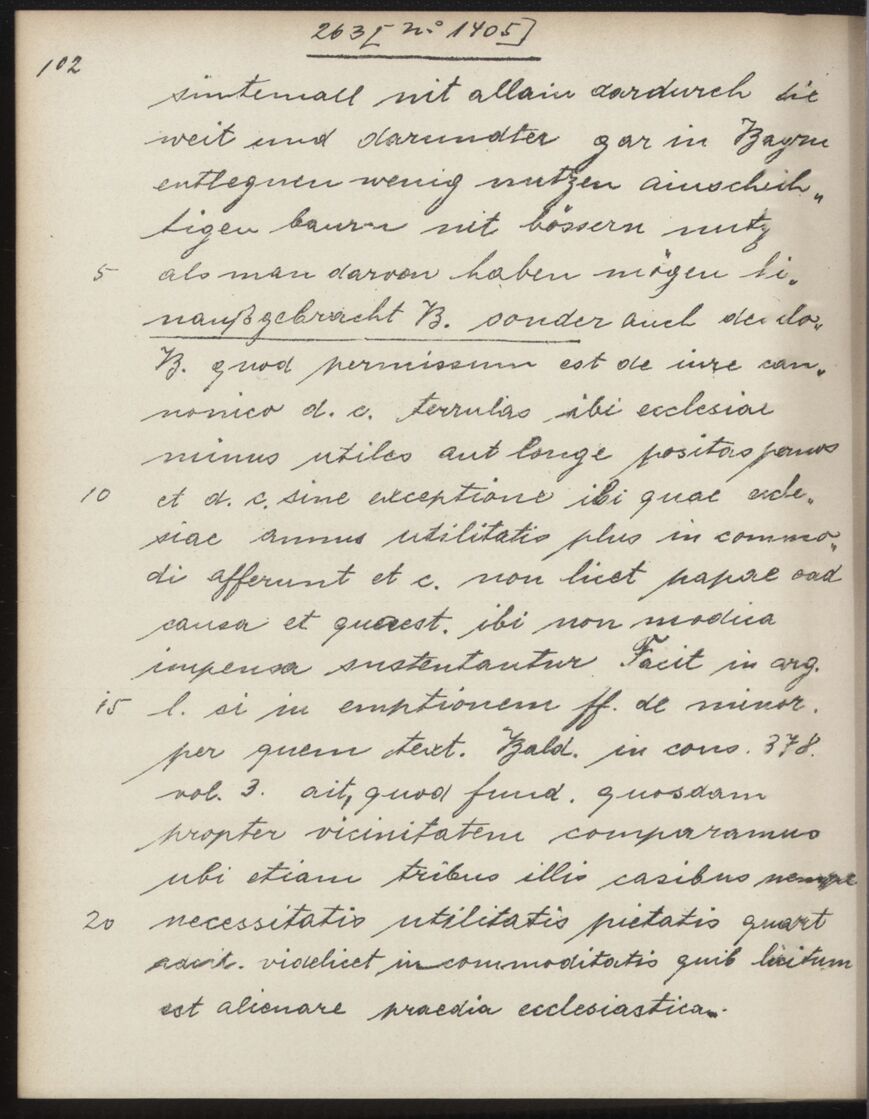 263 [no 1405]
102
sintemall nit allain dardurch die
weit und darundter gar in Bayrn
entlegnen wenig nutzen ainschich„
tigen baurn nit bössern nutz
5 als man darvon haben mögen hi„
naußgebracht B. sonder auch
B. quod permissum est de iure can„
nonico d. c. terrulas ibi ecclesiae
minus utiles aut longe positas
10 et d. c. sine exceptione ibi quae eccle„
siae annus utilitatis plus in commo„
di afferunt et c. non licet papae
causa et quaest. ibi non modica
impensa sustentantur Facit in arg.
15 l. si in emptionem ff. de minor.
per quem text. Bald. in cons. 378.
vol. 3. ait, quod fund. quosdam
propter vicinitatem comparamus
ubi etiam tribus illis casibus nempe
20 necessitatis utilitatis pietatis quart
videlicet incommoditatis quib licitum
est alienare praedia ecclesiastica„.